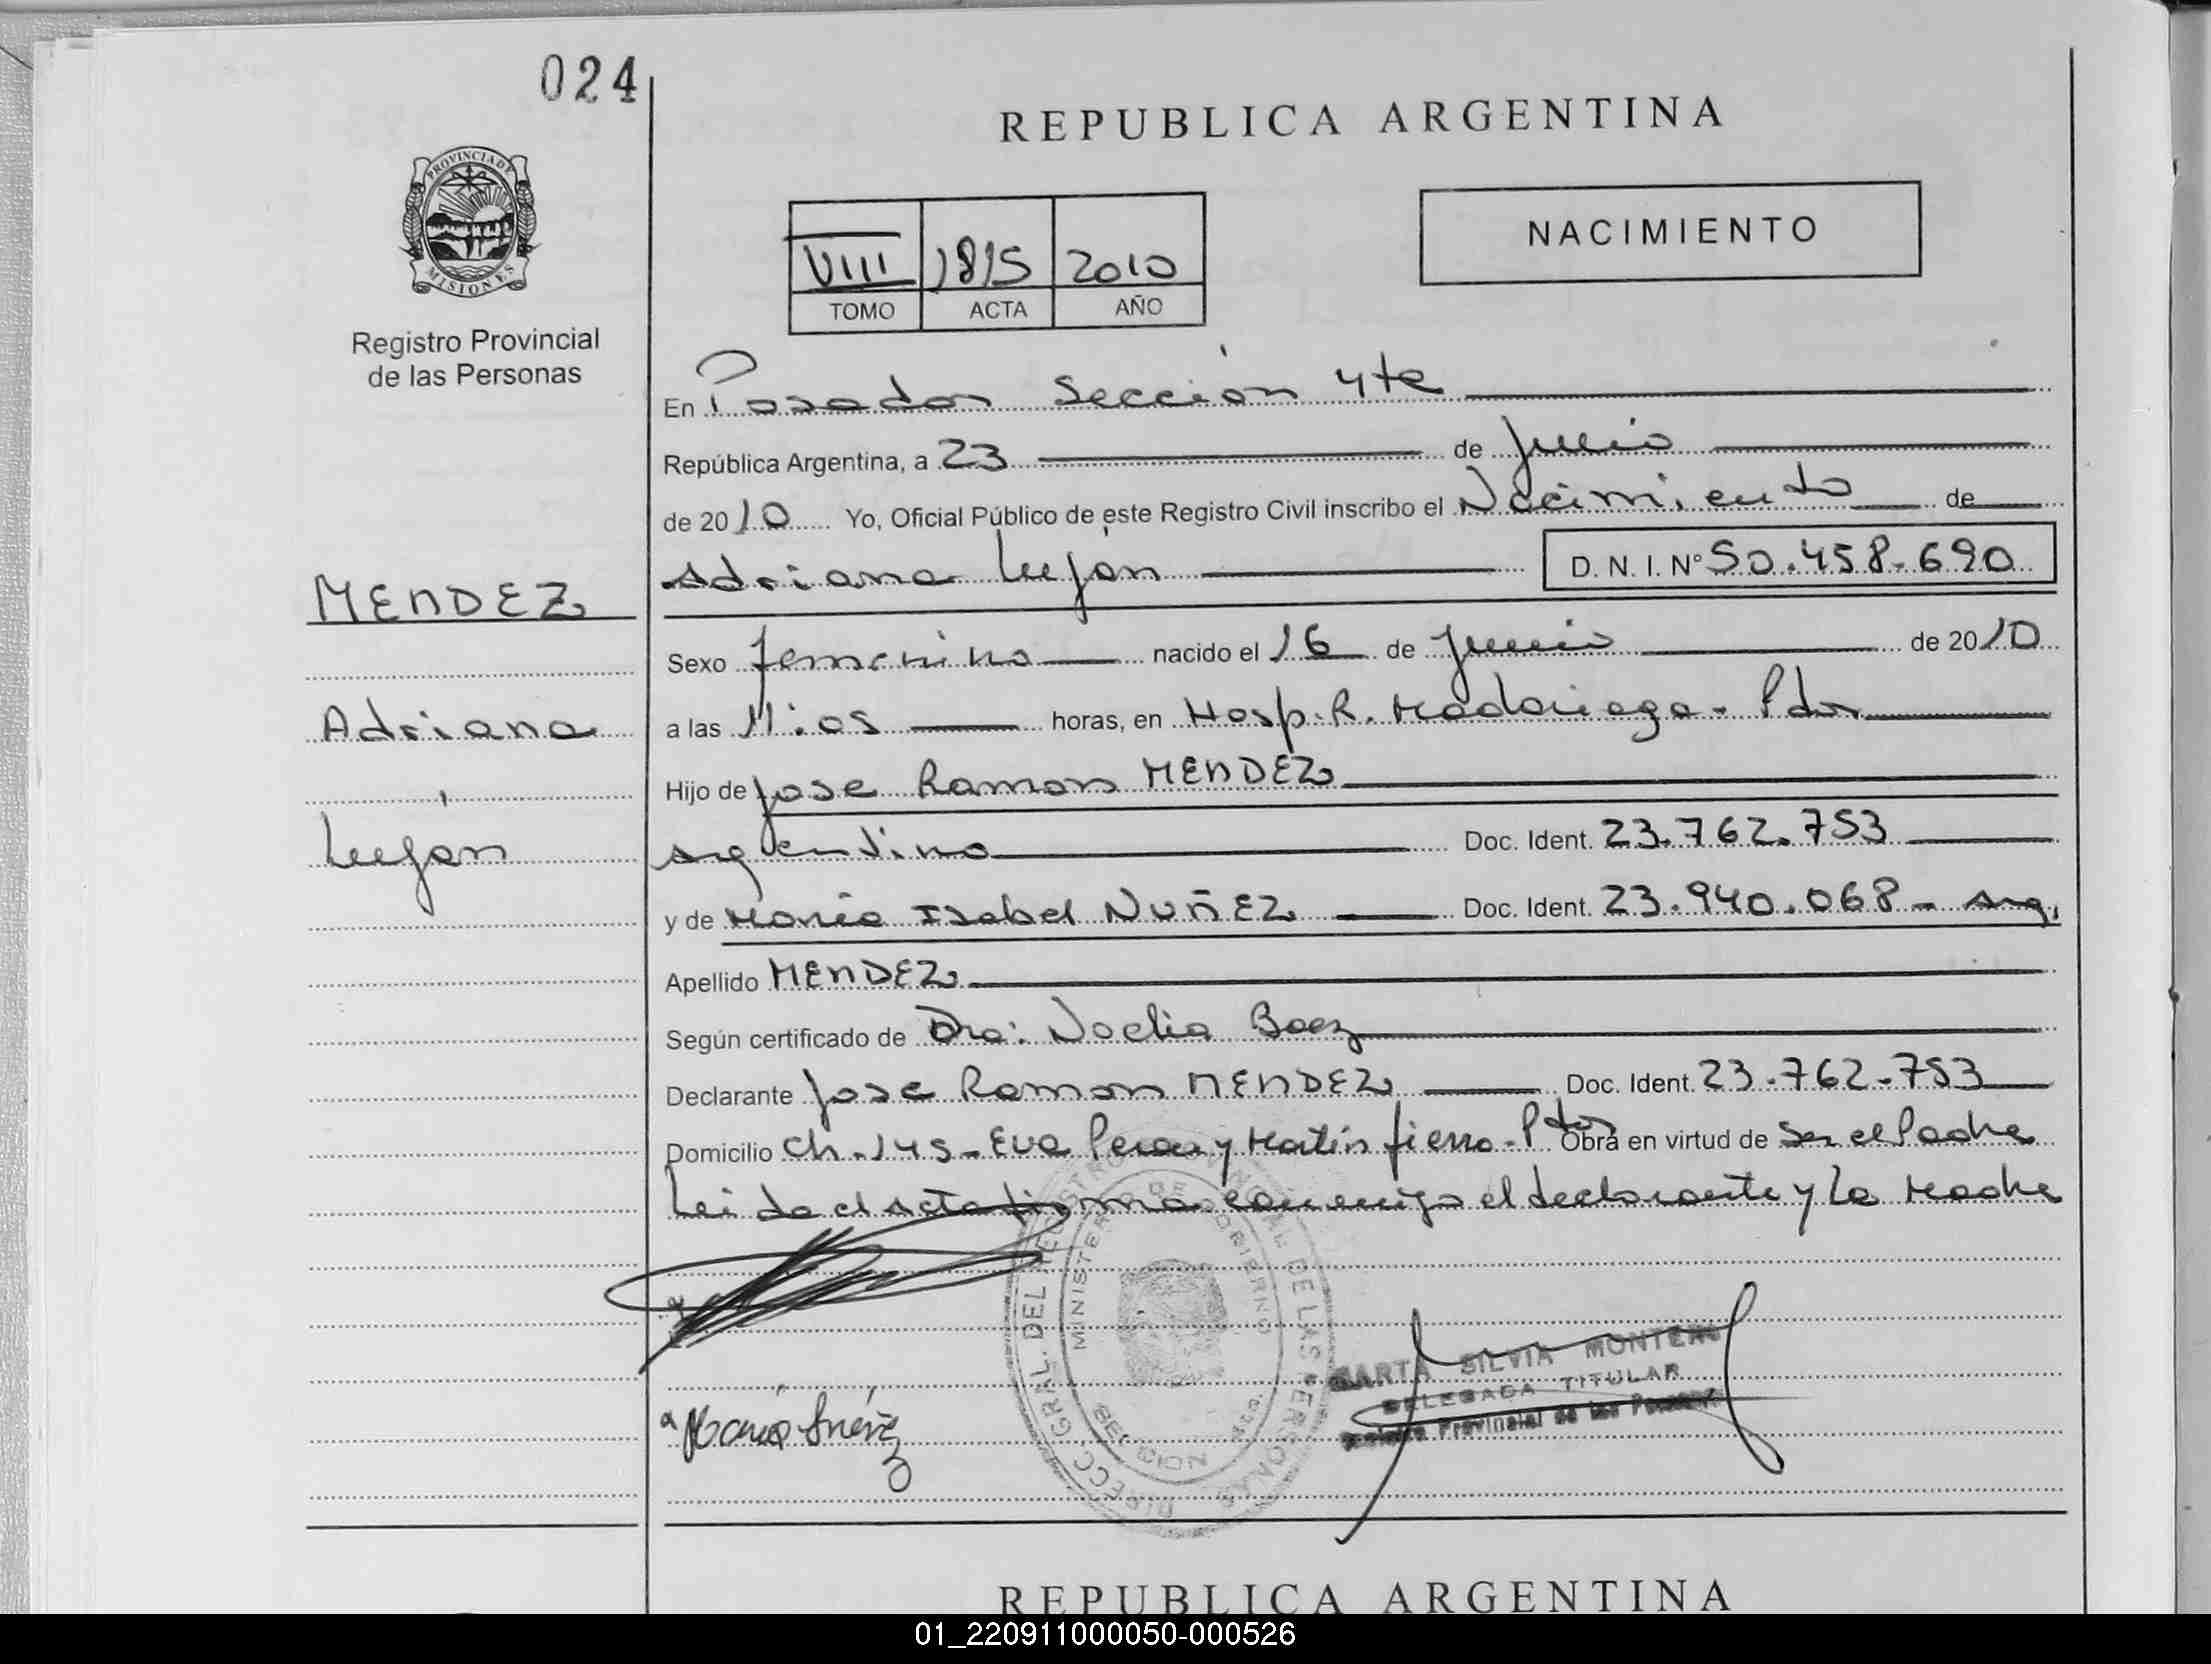 024
REPUBLICA ARGENTINA
PROVINCIA DE
MISIONES
Registro Provincial
de las Personas
VIII 1815 2010
TOMO ACTA AÑO
NACIMIENTO
En Posadas Sección 4ta
República Argentina, a 23 de Junio
de 2010 Yo, Oficial Público de este Registro Civil inscribo el Nacimiento de
Adriana Luján D. N. I. N° 50.458.690
MENDEZ
Sexo femenino nacido el 16 de Junio de 2010
Adriana
a las 11:05 horas, en Hosp. R. Madariaga - Pdas
Hijo de Jose Ramon MENDEZ
Luján
argentino Doc. Ident. 23.762.753
y de María Isabel NUÑEZ Doc. Ident. 23.940.068 - Arg.
Apellido MENDEZ
Según certificado de Dra: Noelia Baez
Declarante Jose Ramon MENDEZ Doc. Ident. 23.762.753
Domicilio Ch. 145 - Eva Peron y Martín fierro - Pdas Obra en virtud de Ser el Padre
Leida el acta firma conmigo el declarante y La Madre
DIRECC. GRAL. DEL REGISTRO PROVINCIAL DE LAS PERSONAS
MINISTERIO DE GOBIERNO
MARTA SILVIA MONTERO
DELEGADA TITULAR
Registro Provincial de las Personas
REPUBLICA ARGENTINA
01_220911000050-000526